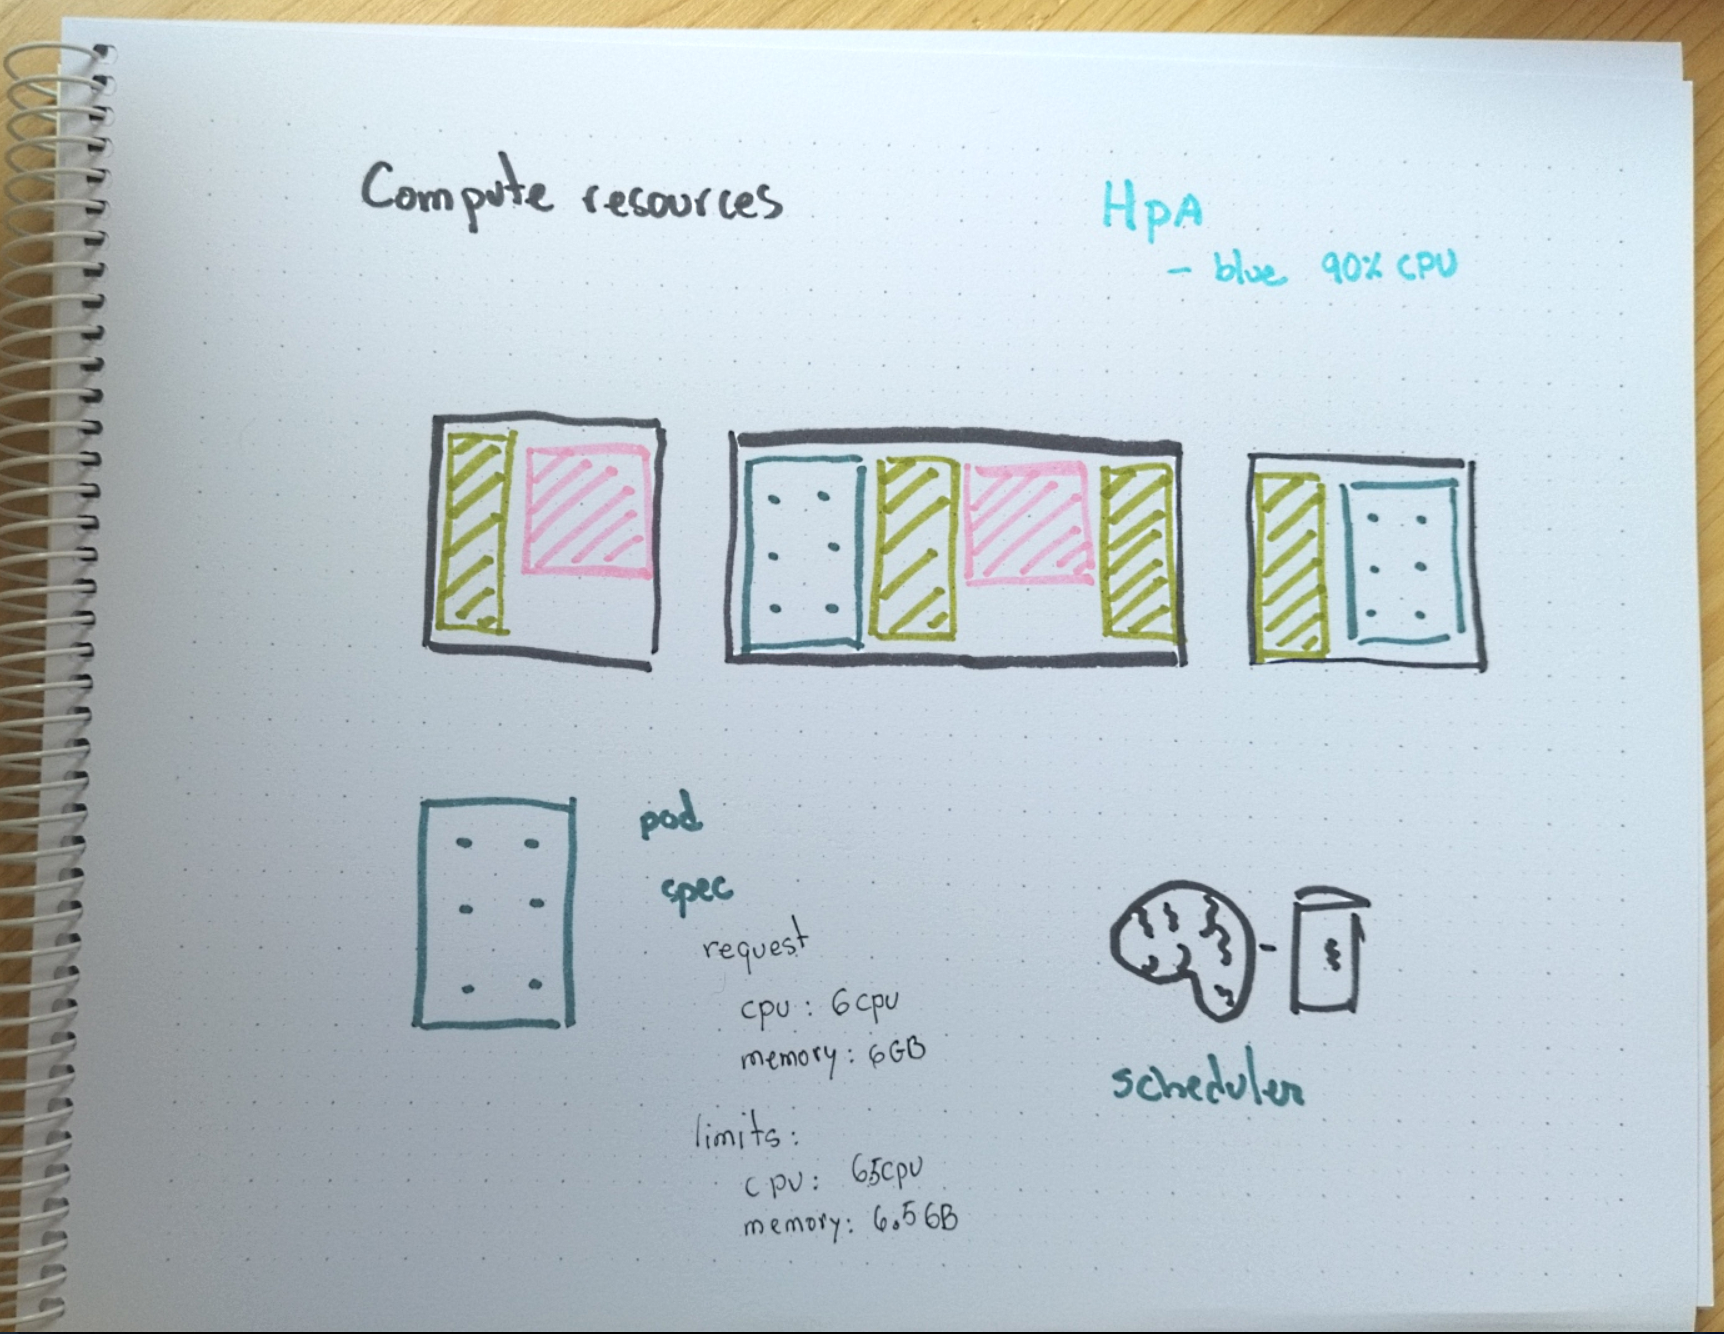 Compute resources
HpA
- blue 90% CPU
pod
spec
request
cpu: 6cpu
memory: 6GB
limits:
cpu: 6.5cpu
memory: 6.5GB
scheduler